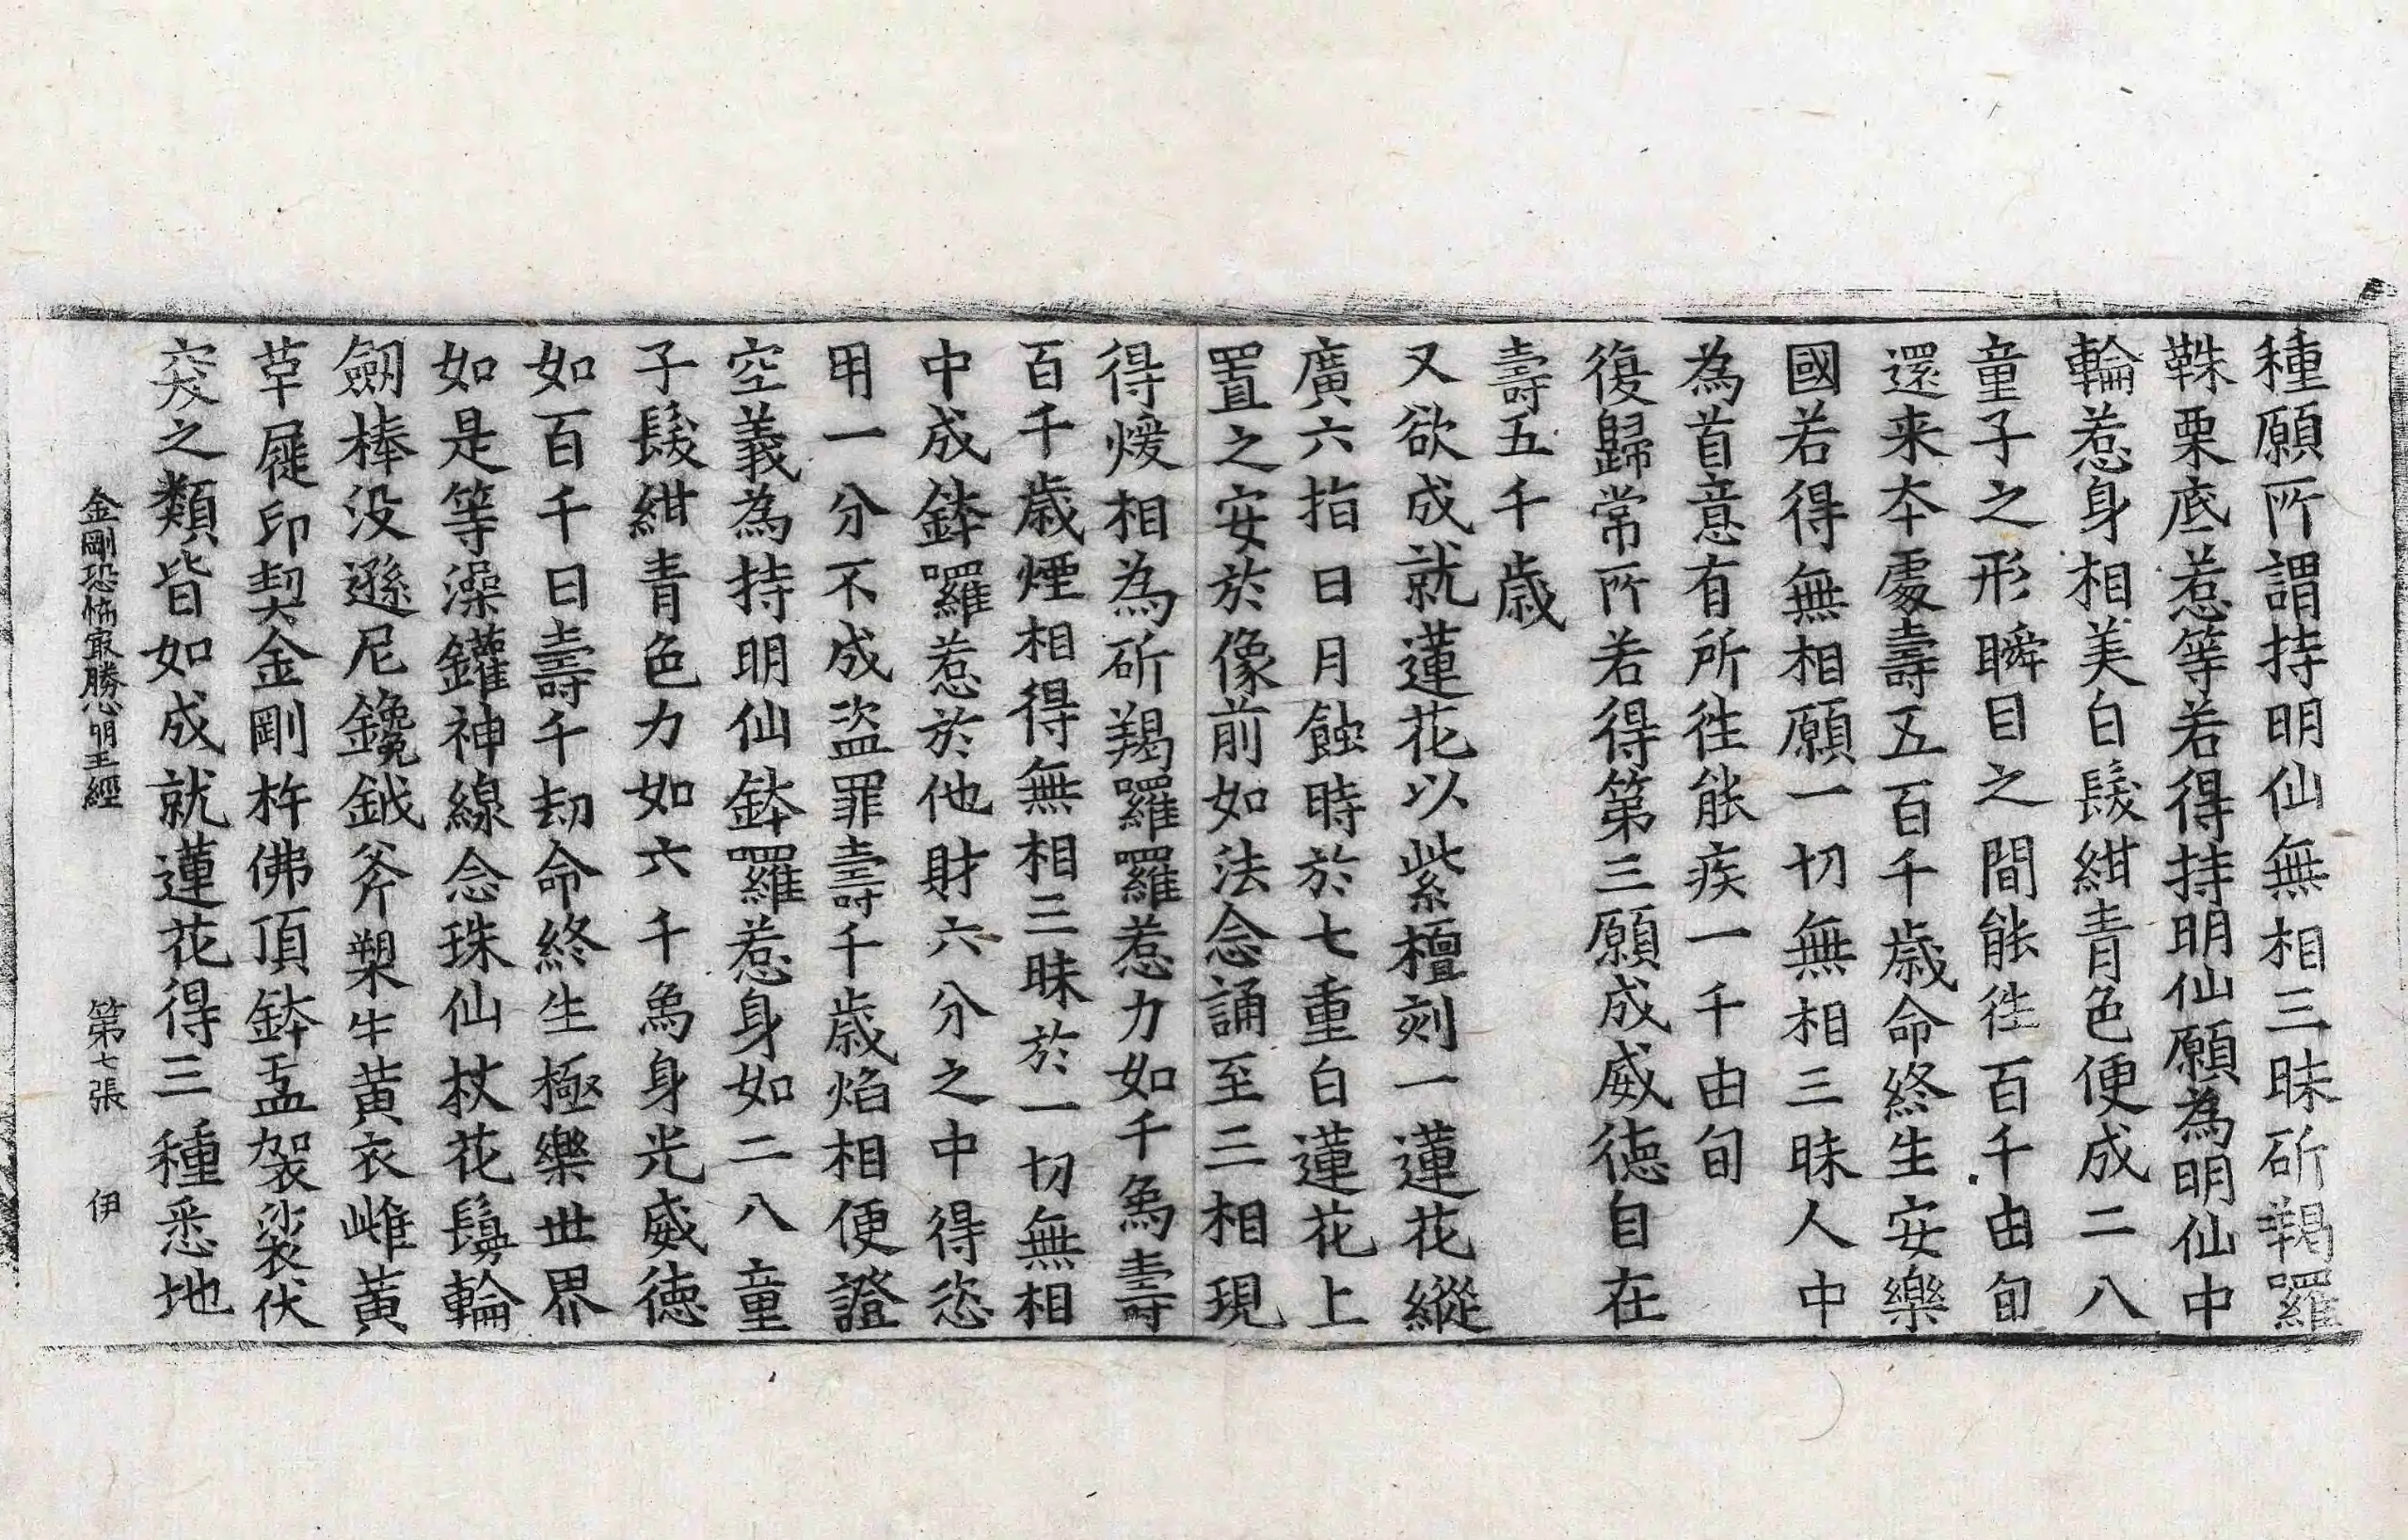 種願所謂持明仙無相三昧斫羯羅
靺栗底惹等若得持明仙願為明仙中
輪惹身相美白髮紺青色便成二八
童子之形瞬目之間能往百千由旬
還来夲處壽五百千歳命終生安樂
國若得無相願一切無相三昧人中
為首意有所往能疾一千由旬
復歸常所若得第三願成威徳自在
壽五千歳
又欲成就蓮花以紫檀刻一蓮花縱
廣六指日月蝕時於七重白蓮花上
置之安於像前如法念誦至三相現
得煖相為斫羯囉囉惹力如千象壽
百千歳煙相得無相三昧於一切無相
中成鉢囉惹於他財六分之中得恣
用一分不成盗罪壽千歳焰相便證
空義為持明仙鉢囉惹身如二八童
子髮紺青色力如六千象身光威徳
如百千日壽千劫命終生極樂世界
如是等澡鑵神線念珠仙杖花鬘輪
劒棒没遜尼鑱鉞斧槊牛黄衣雌黄
草屣印契金剛杵佛頂鉢盂袈裟伏
突之類皆如成就蓮花得三種悉地
金剛恐怖㝡勝心明王經 第七張 伊